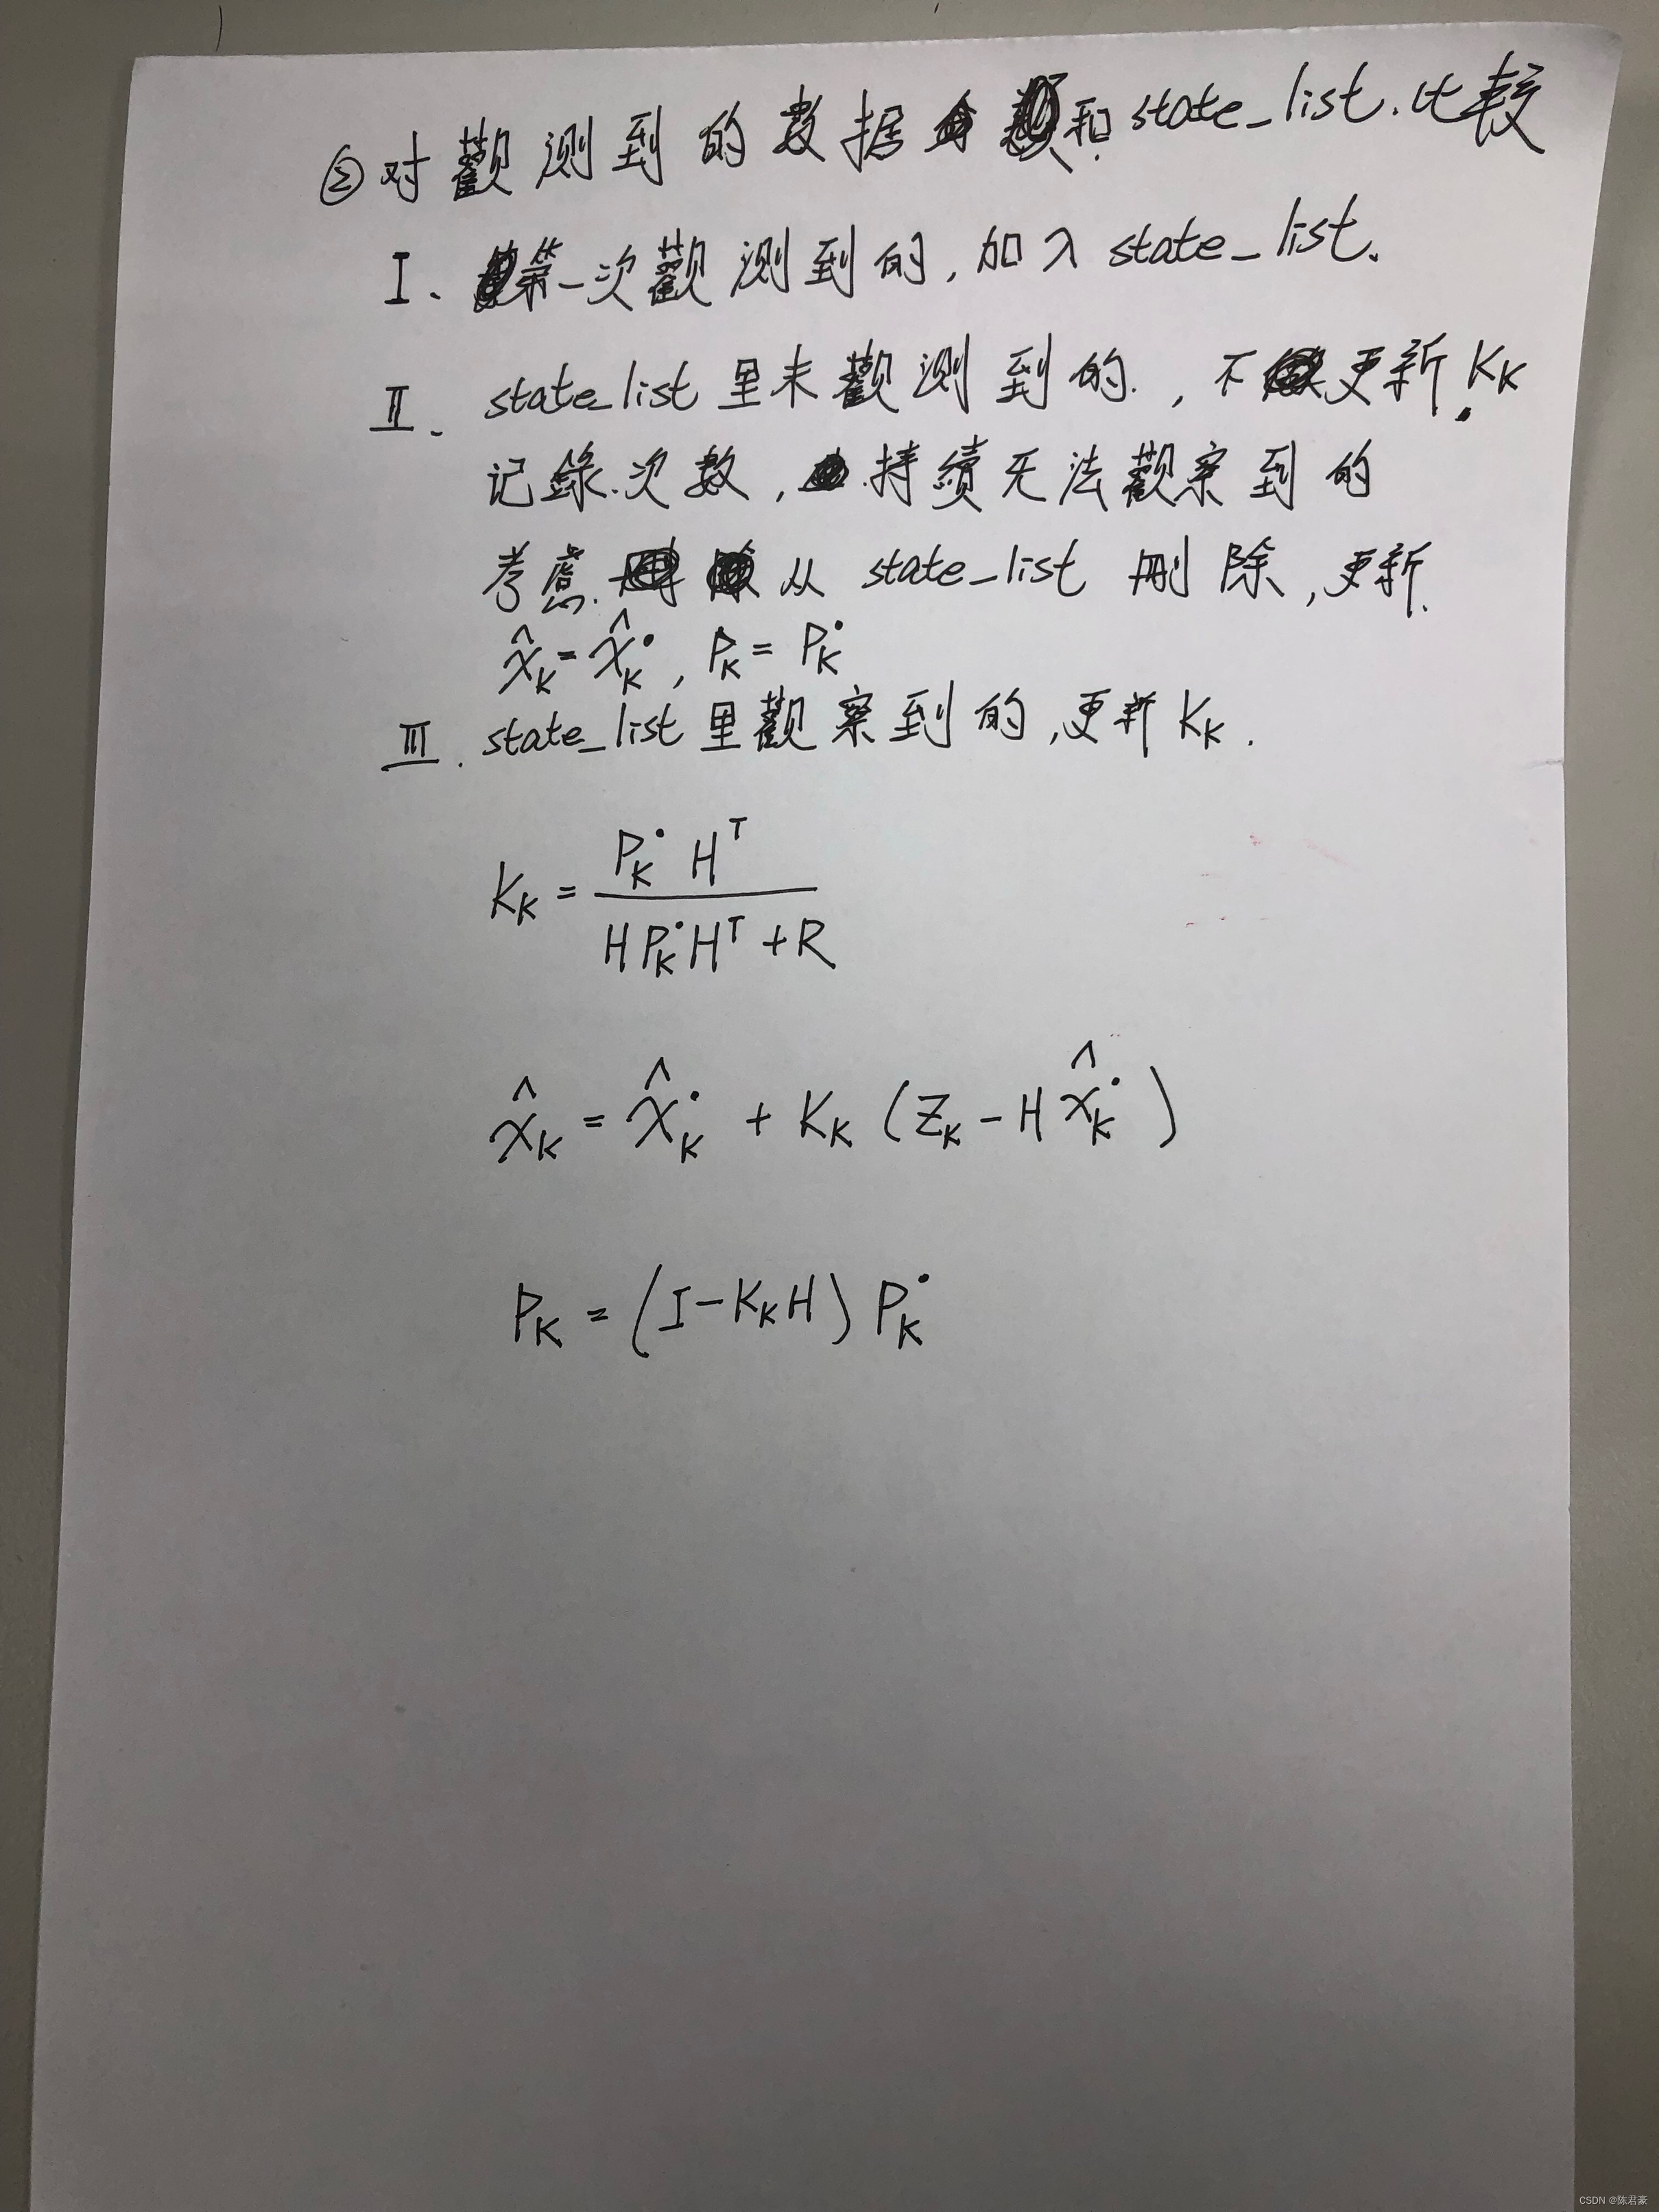 ②对觀测到的数据和state_list.比较
I、第一次觀测到的,加入state_list.
Ⅱ、state_list里未觀测到的.,不更新K_K
记錄.次数,持續无法觀察到的
考慮.从state_list刪除,更新.
x̂_K=x̂_K˙,P_K=P_K˙
Ⅲ.state_list里觀察到的,更新K_K.
K_K = P_K˙ H^T / (H P_K˙ H^T + R)
x̂_K = x̂_K˙ + K_K (Z_K - H x̂_K˙)
P_K = (I - K_K H) P_K˙
CSDN @陈君豪